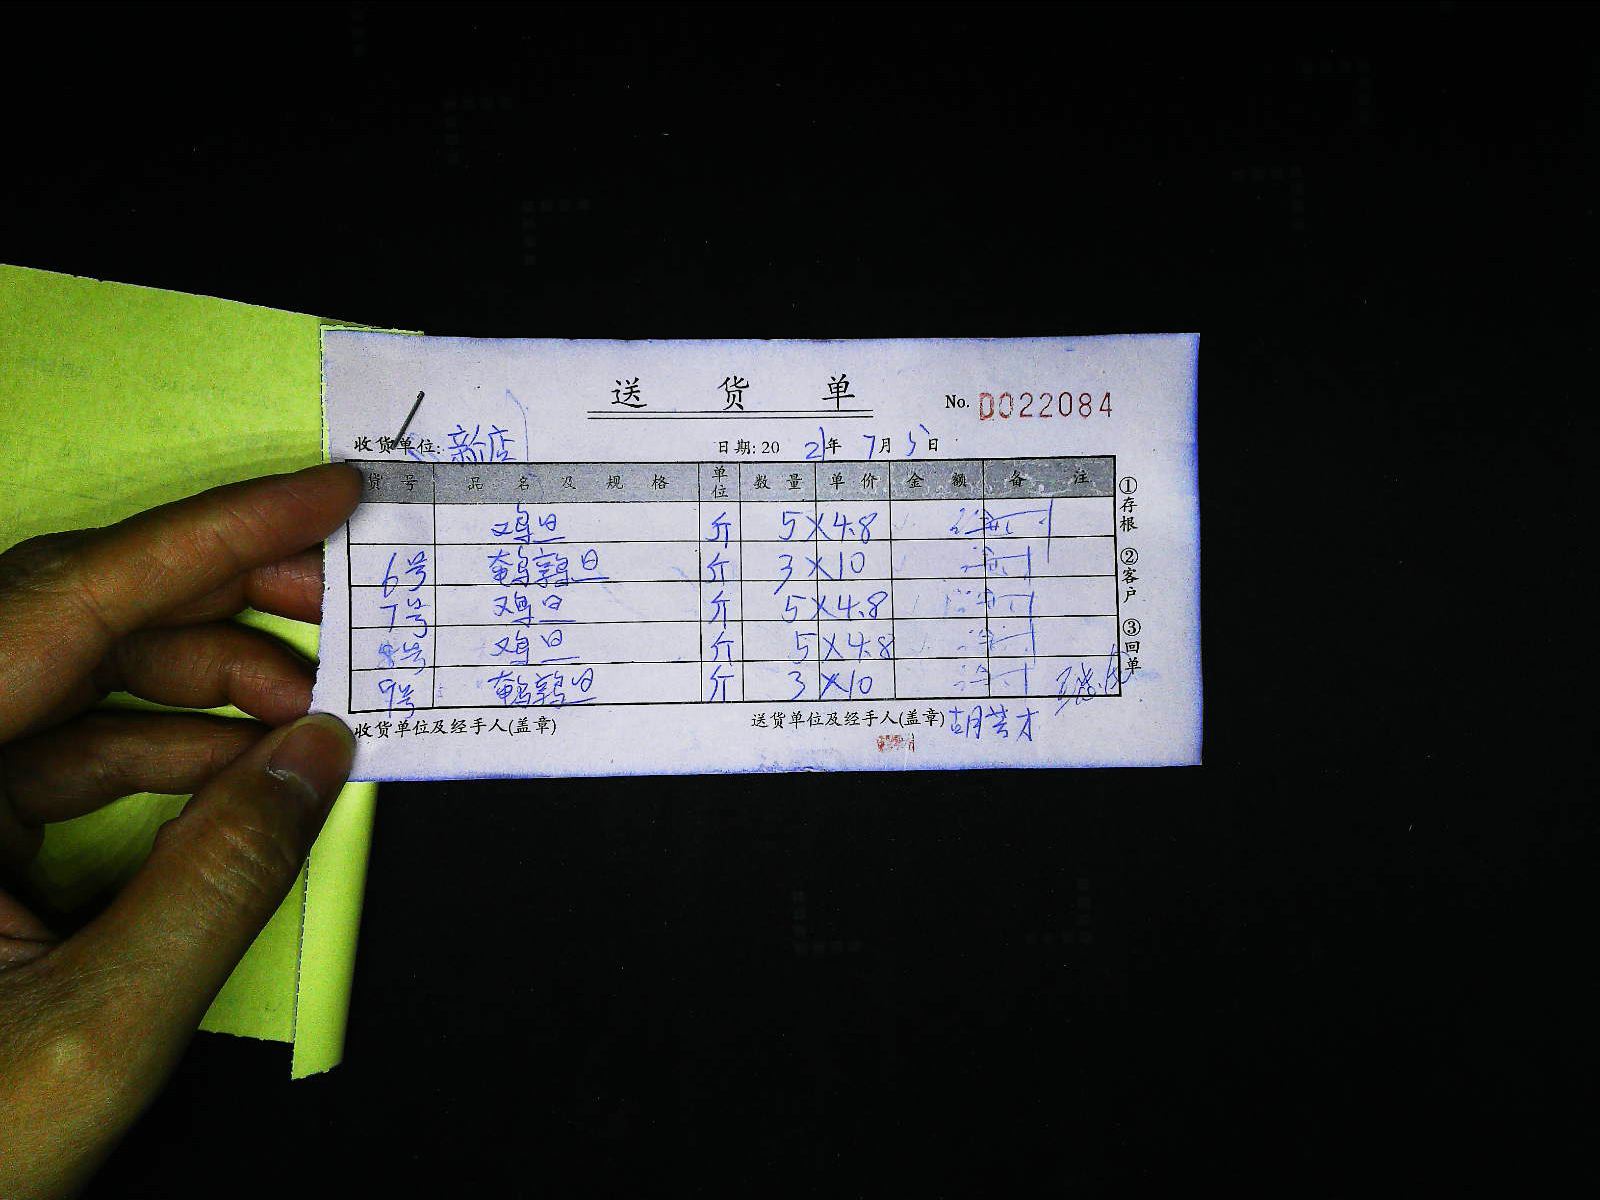 送 货 单
No. 0022084
收货单位: 新店 日期: 20 21年 7月 5日
货 号 品 名 及 规 格 单位 数 量 单 价 金 额 备 注
鸡旦 斤 5 × 4.8
6号 鹌鹑旦 斤 3 × 10
7号 鸡旦 斤 5 × 4.8
8号 鸡旦 斤 5 × 4.8
9号 鹌鹑旦 斤 3 × 10
收货单位及经手人(盖章) 送货单位及经手人(盖章) 胡芸才
①存根 ②客户 ③回单